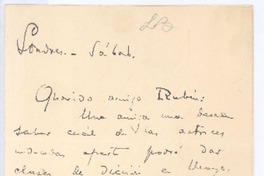 Londres.- Sábado.
Querido amigo Rubín:
Una amiga mía desea
saber cuál de las actrices
podrá dar
clases de Dicción en